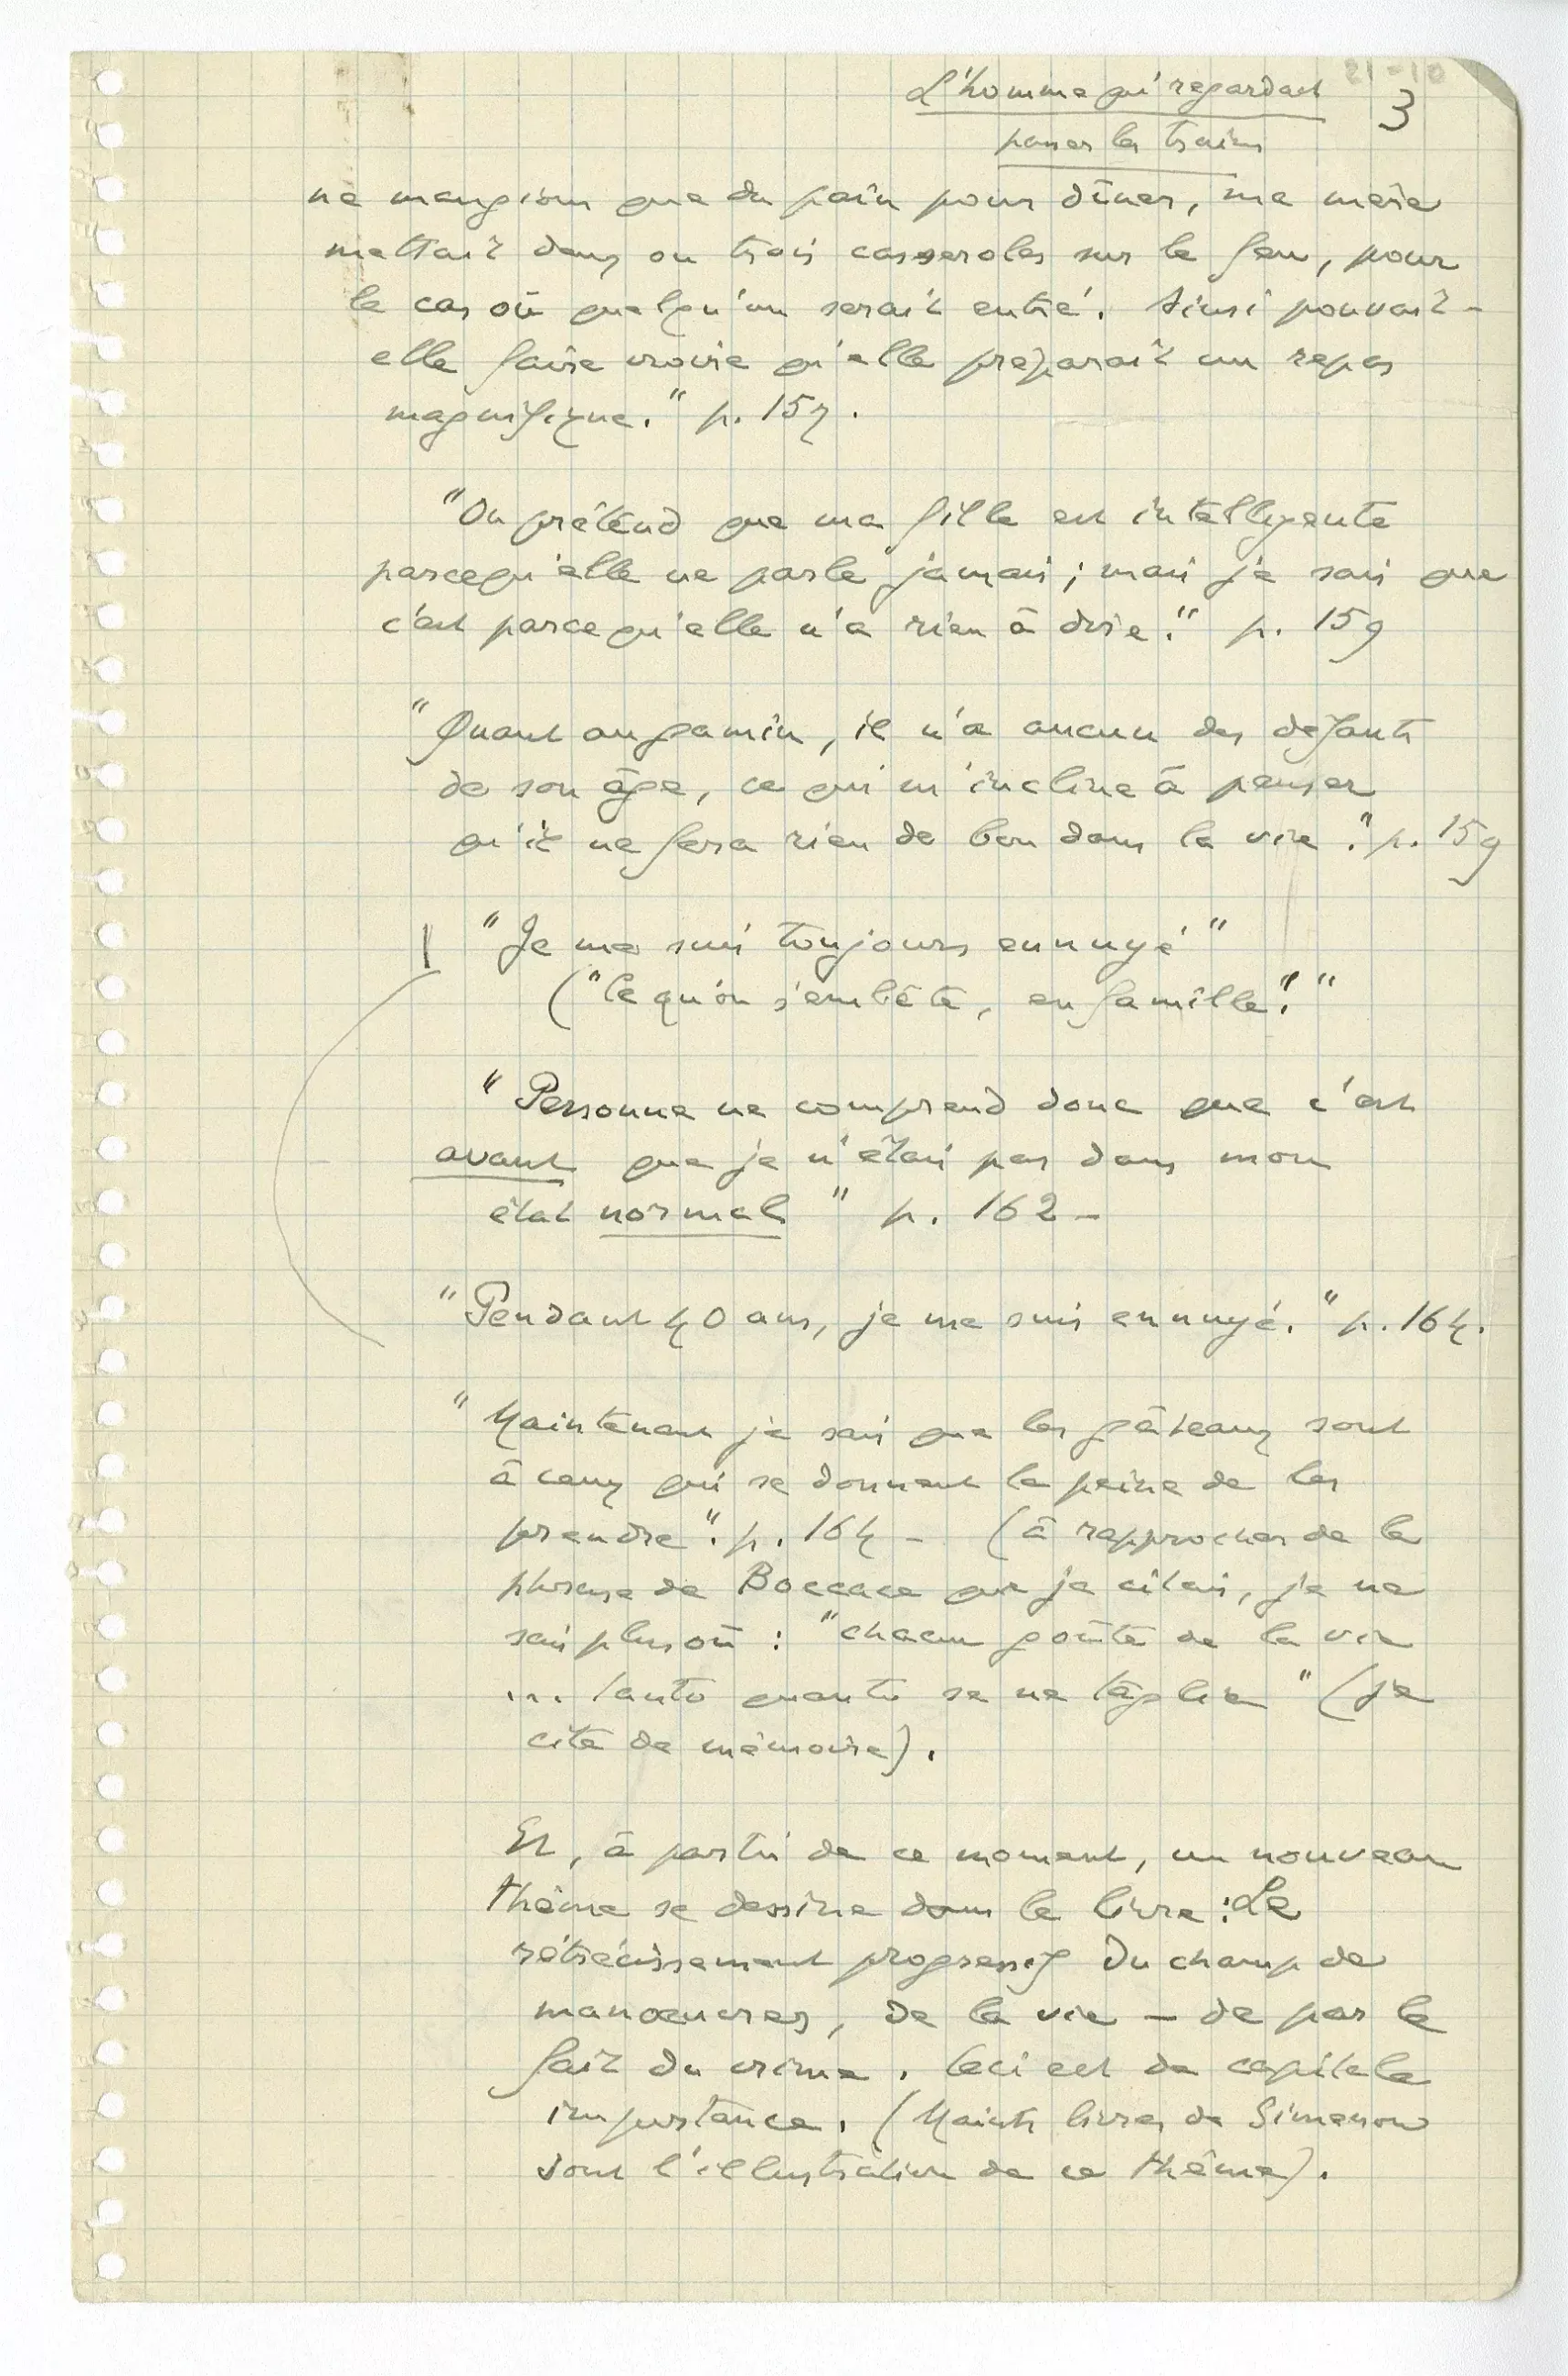 21-10
L'homme qui regardait 3
passer les trains
ne mangions que du pain pour dîner, ma mère
mettait deux ou trois casseroles sur le feu, pour
le cas où quelqu'un serait entré. Ainsi pouvait-
elle faire croire qu'elle préparait un repas
magnifique." p. 157.
"On prétend que ma fille est intelligente
parcequ'elle ne parle jamais ; mais je sais que
c'est parce qu'elle n'a rien à dire." p. 159
"Quant au gamin, il n'a aucun des défauts
de son âge, ce qui m'incline à penser
qu'il ne fera rien de bon dans la vie." p. 159
"Je me suis toujours ennuyé"
("Ce qu'on s'embête, en famille"."
"Personne ne comprend donc que c'est
avant que je n'étais pas dans mon
état normal" p. 162 -
"Pendant 40 ans, je me suis ennuyé." p. 164.
"Maintenant je sais que les gâteaux sont
à ceux qui se donnent la peine de les
prendre". p. 164 - (à rapprocher de la
phrase de Boccace que je citais, je ne
sais plus où : "chacun goûte de la vie
... tanto quanto se ne toglie" (je
cite de mémoire).
Et, à partir de ce moment, un nouveau
thème se dessine dans le livre : Le
rétrécissement progressif du champ de
manœuvres, de la vie - de par le
fait du crime. Ceci est de capitale
importance. (Maints livres de Simenon
sont l'illustration de ce thème).